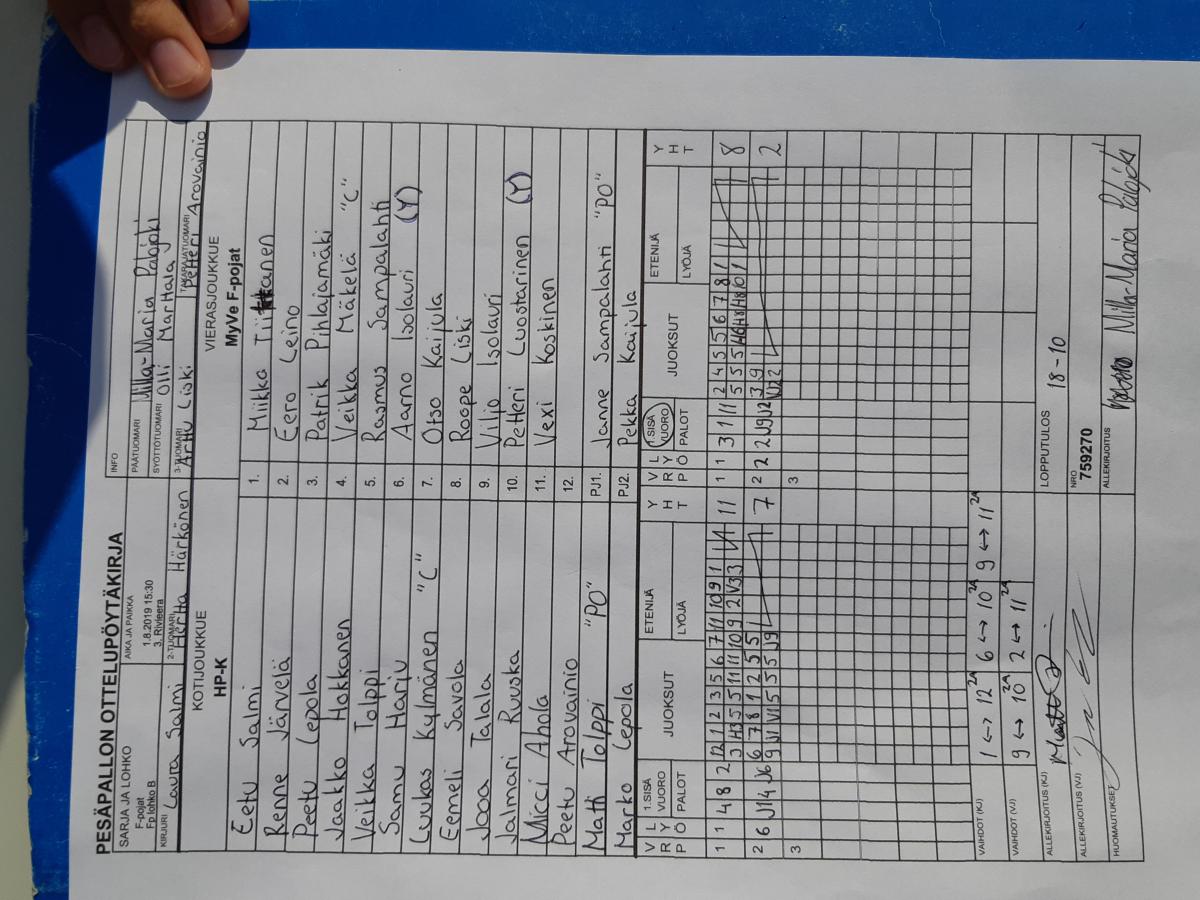 PESÄPALLON OTTELUPÖYTÄKIRJA
SARJA JA LOHKO
F-pojat
Fp lohko B
AIKA JA PAIKKA
1.8.2019 15:30
3, Rivieera
INFO
PÄÄTUOMARI Milla-Maria Palojoki
SYÖTTÖTUOMARI Olli Marttala
KIRJURI Laura Salmi
2-TUOMARI Hertta Härkönen
3-TUOMARI Arttu Liski
TAKARAJATUOMARI Petteri Arovainio
KOTIJOUKKUE
HP-K
VIERASJOUKKUE
MyVe F-pojat
Eetu Salmi 1. Miikka
Renne Järvelä 2. Eero Leino
Peetu Lepola 3. Patrik Pihlajamäki
Jaakko Hokkanen 4. Veikka Mäkelä "C"
Veikka Tolppi 5. Rasmus Sampalahti
Samu Harju 6. Aarno Isolauri (Y)
Luukas Kylmänen "C" 7. Otso Kaijula
Eemeli Savola 8. Roope Liski
Jooa Talala 9. Viljo Isolauri
Jalmari Ruuska 10. Petteri Luostarinen (Y)
Micci Ahola 11. Vexi Koskinen
Peetu Arovainio 12.
Matti Tolppi "PO" PJ1. Janne Sampalahti "PO"
Marko Lepola PJ2. Pekka Kaijula
V R P L Y Ö 1.SISÄ VUORO PALOT JUOKSUT ETENIJÄ LYÖJÄ Y H T V R P L Y Ö 1.SISÄ VUORO PALOT JUOKSUT ETENIJÄ LYÖJÄ Y H T
1 1 4 8 2 12 1 2 3 5 6 7 11 10 9 1 11 1 1 3 1 11 2 4 5 5 6 7 8 1 8
3 H3 5 5 11 11 10 9 2 V3 3
2 6 J1 4 J6 6 7 8 1 2 5 5 7 2 2 2 J9 J2 3 9 2
9 J1 V1 5 5 5 J9
3 3
VAIHDOT (KJ) 1 ↔ 12 2A 6 ↔ 10 2A 9 ↔ 11 2A
VAIHDOT (VJ) 9 ↔ 10 2A 2 ↔ 11 2A
ALLEKIRJOITUS (KJ)
LOPPUTULOS 18-10
ALLEKIRJOITUS (VJ)
NRO
759270
HUOMAUTUKSET
ALLEKIRJOITUS Milla-Maria Palojoki